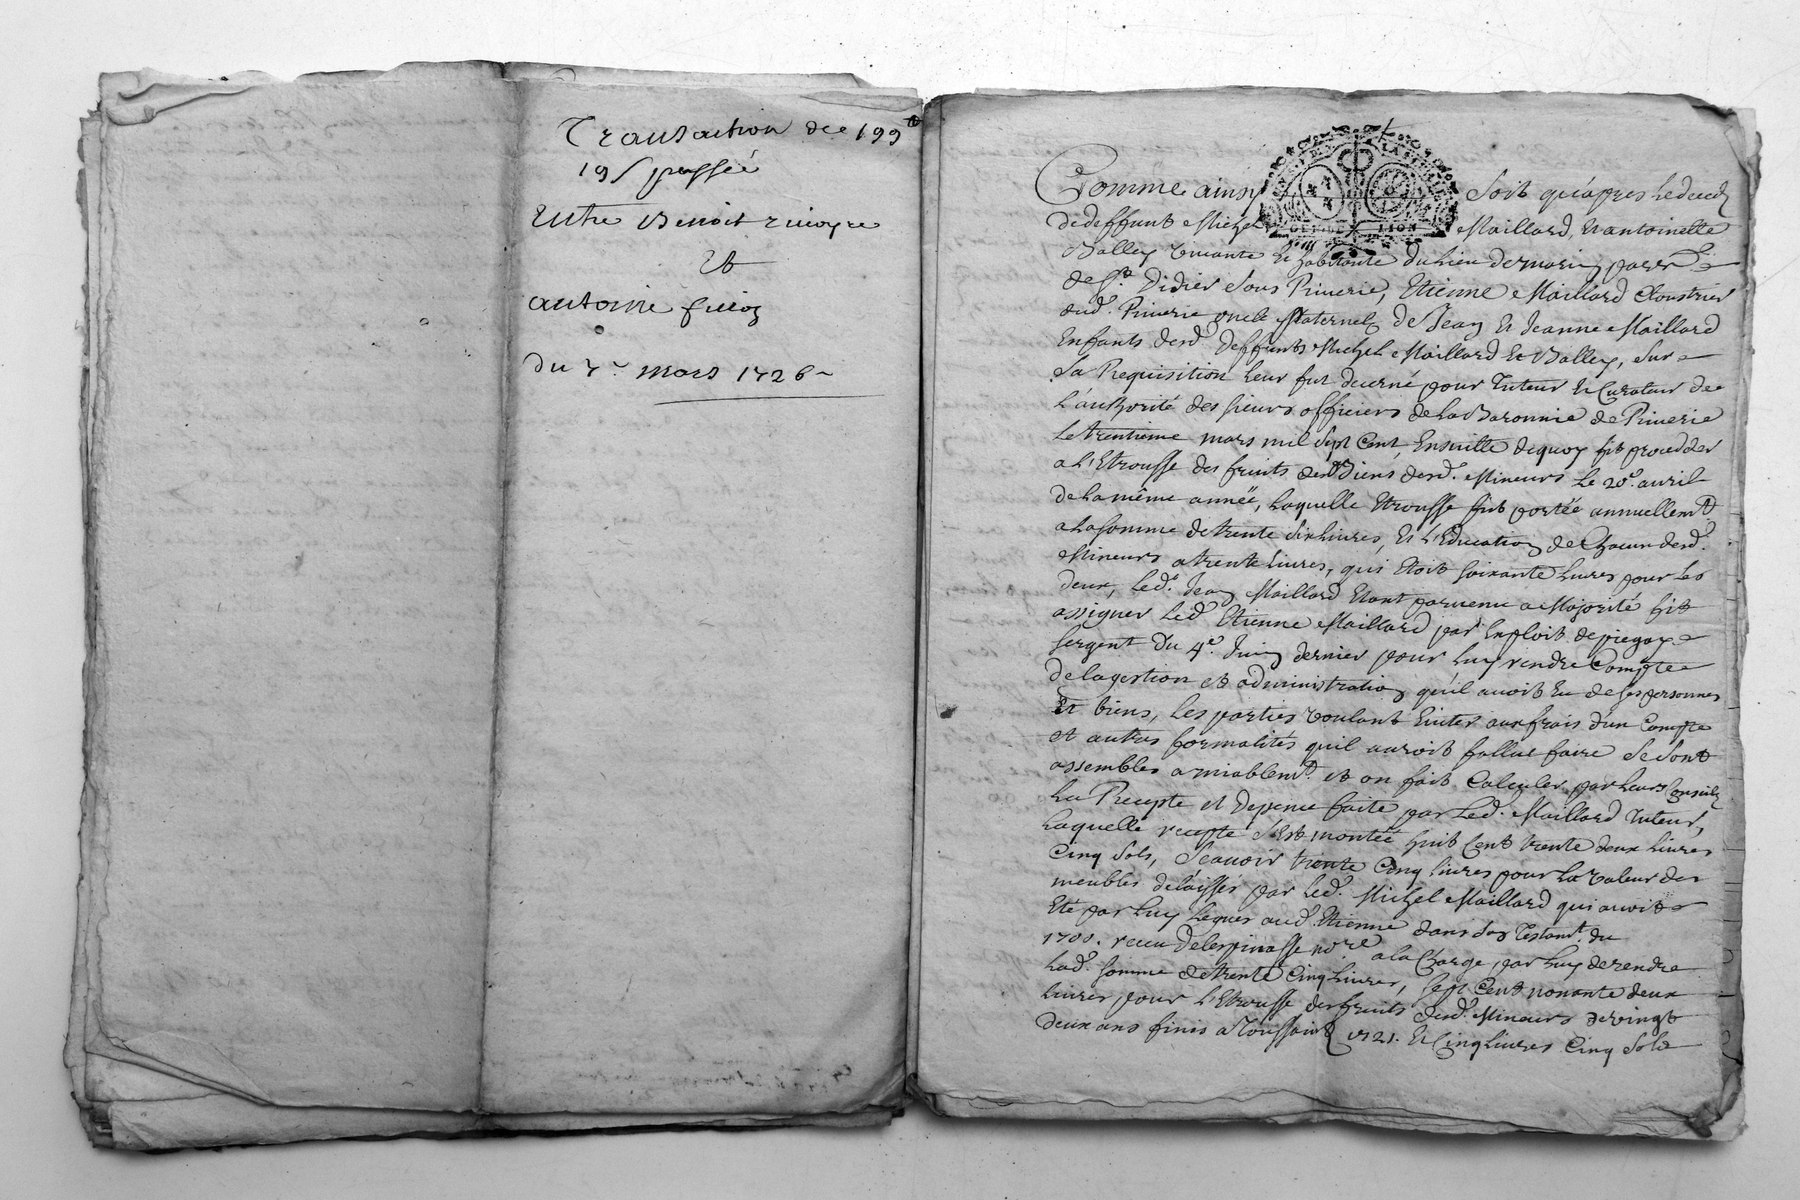 Transaction de 199
19 s passée
Entre Benoit
Et
antoine
du 7e mars 1726
Comme ainsy soit qu'apres le deced
de deffunt Michel Maillard, Et antoinette
Balley vivante Et habitante du lieu de
de St. Didier sous Riverie, Etienne Maillard Cloustrier
dud. Riverie oncle Maternel de Jean Et Jeanne Maillard
Enfants desd. deffunts Michel Maillard Et Balley, sur
sa Requisition leur fut decerné pour Tuteur Et Curateur de
l'authorité des sieurs officiers de la Baronnie de Riverie
le trentieme mars mil sept Cent, Ensuitte de quoy fit proceder
a l'Etrousse des fruits des Biens desd. Mineurs le 20e. avril
de la même année, laquelle Etrousse fut portée annuellemt
a la somme de trente six livres, Et l'Education de Chacun desd.
Mineurs a trente livres, qui Etoit soixante livres pour les
deux, led. Jean Maillard Etant parvenu a Majorité fit
assigner led. Etienne Maillard par Exploit de piegay
sergent du 4e. Juin dernier pour luy rendre Compte
de la gestion et administration qu'il avoit Eu de ses personnes
Et biens, les parties voulant Eviter aux frais d'un Compte
et autres formalités quil auroit fallut faire se sont
assembles amiablemt. et on fait Calculer par leurs Conseils
la Recepte et Depence faite par led. Maillard Tuteur,
laquelle recepte s'Est montée huit Cent trente deux livres
Cinq sols, scavoir trente Cinq livres pour la valeur des
meubles délaissés par led. Michel Maillard qui avoit
Eté par luy legues aud. Etienne dans son Testamt. du
1700. receu Delespinasse nore a la Charge par luy de rendre
lad. somme de trente Cinq livres, sept Cent nonante deux
livres pour l'Etrousse des fruits desd. Mineurs de vingt
deux ans finis a Toussaint 1721. Et Cinq livres Cinq sols